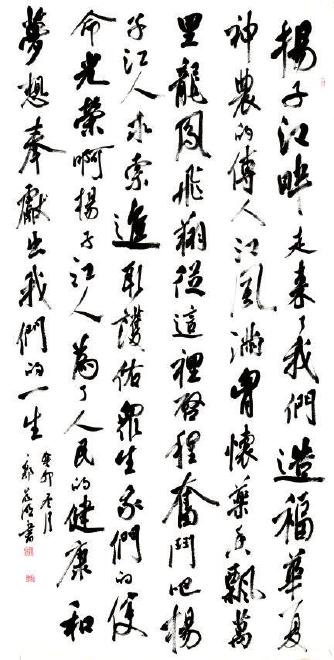 揚子江畔走来了我們造福華夏
神農的傳人江風滿胷懷藥香飄萬
里龍鳳飛翔從這裡啓程奮鬥吧揚
子江人求索進取護佑眾生我們的使
命光榮啊揚子江人為了人民的健康和
夢想奉獻出我們的一生
癸卯冬月
書